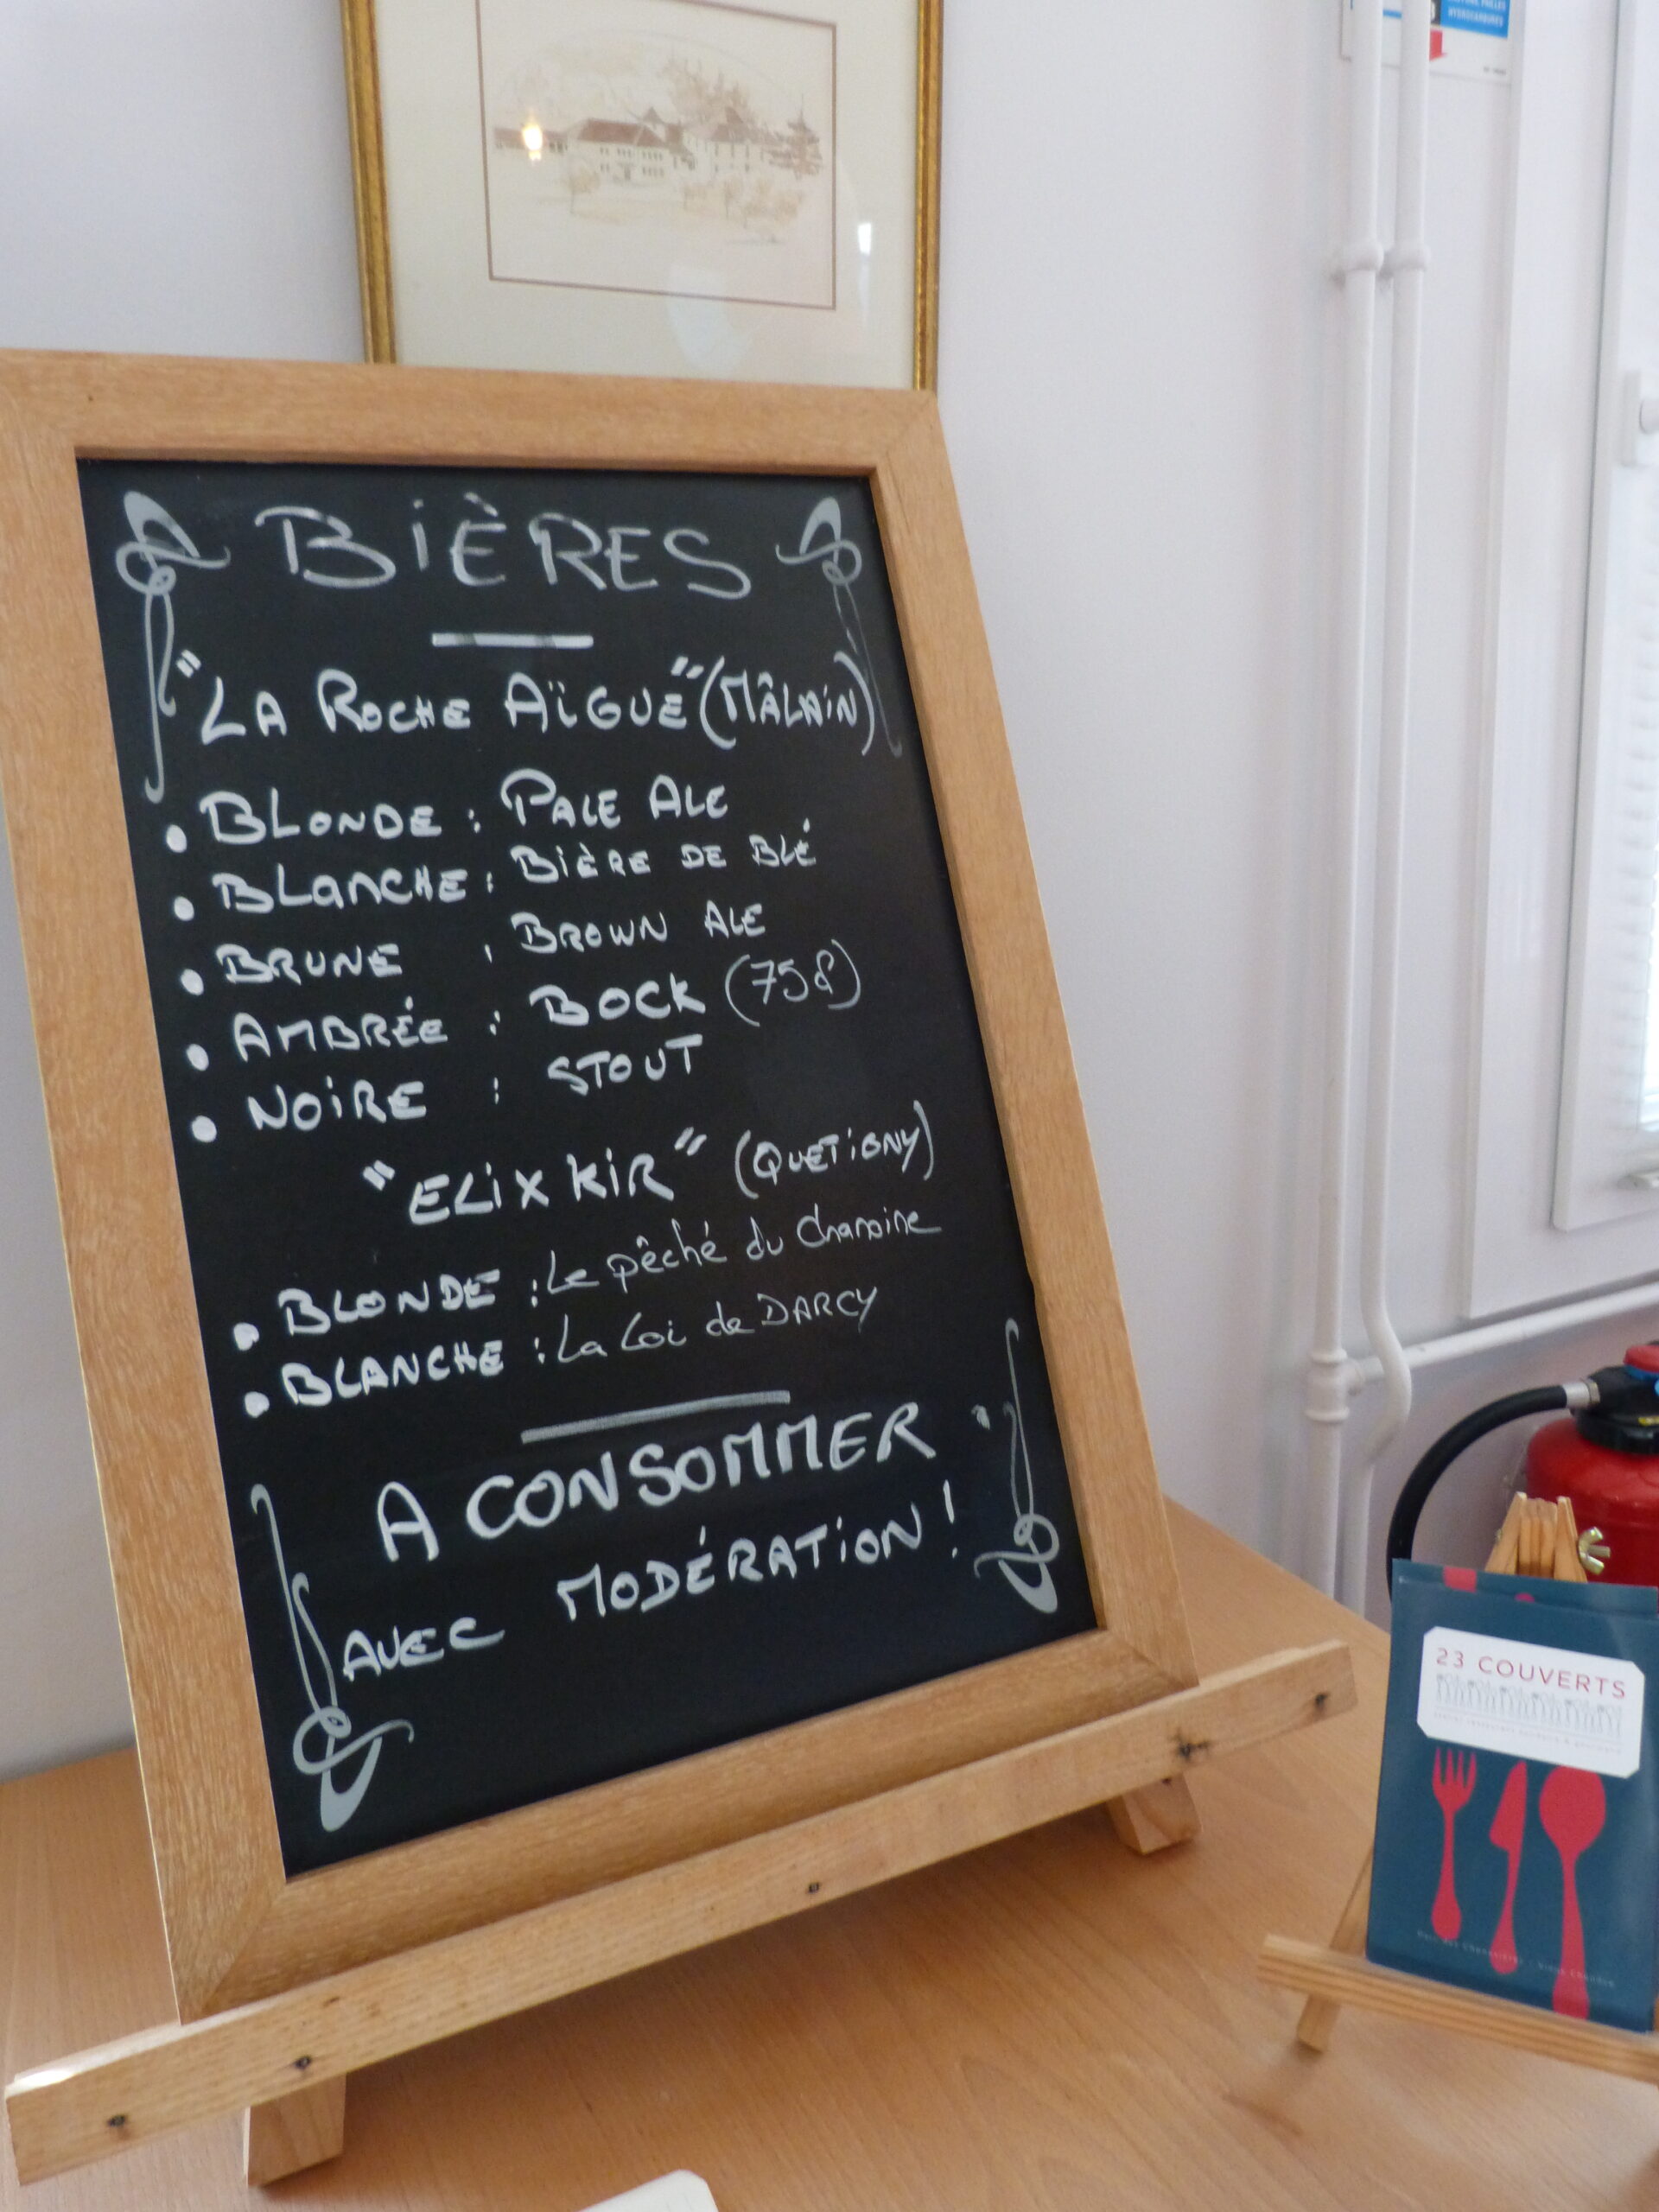 BIÈRES
"LA ROCHE AÏGUE" (MÂLAIN)
• BLONDE : PALE ALE
• BLANCHE : BIÈRE DE BLÉ
• BRUNE : BROWN ALE
• AMBRÉE : BOCK (75cl)
• NOIRE : STOUT
"ELIXKIR" (QUETIGNY)
• BLONDE : Le pêché du Chanoine
• BLANCHE : La Loi de DARCY
A CONSOMMER
AVEC MODÉRATION !
23 COUVERTS
HYDROCARBURES